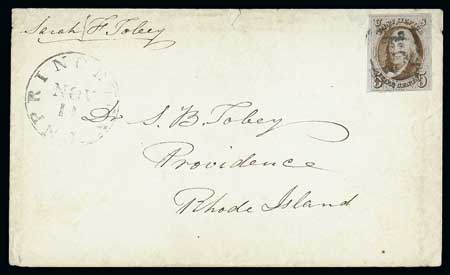 Sarah F Tobey
PRINCE
NOV
Dr S. B. Tobey
Providence
Rhode Island
5 5